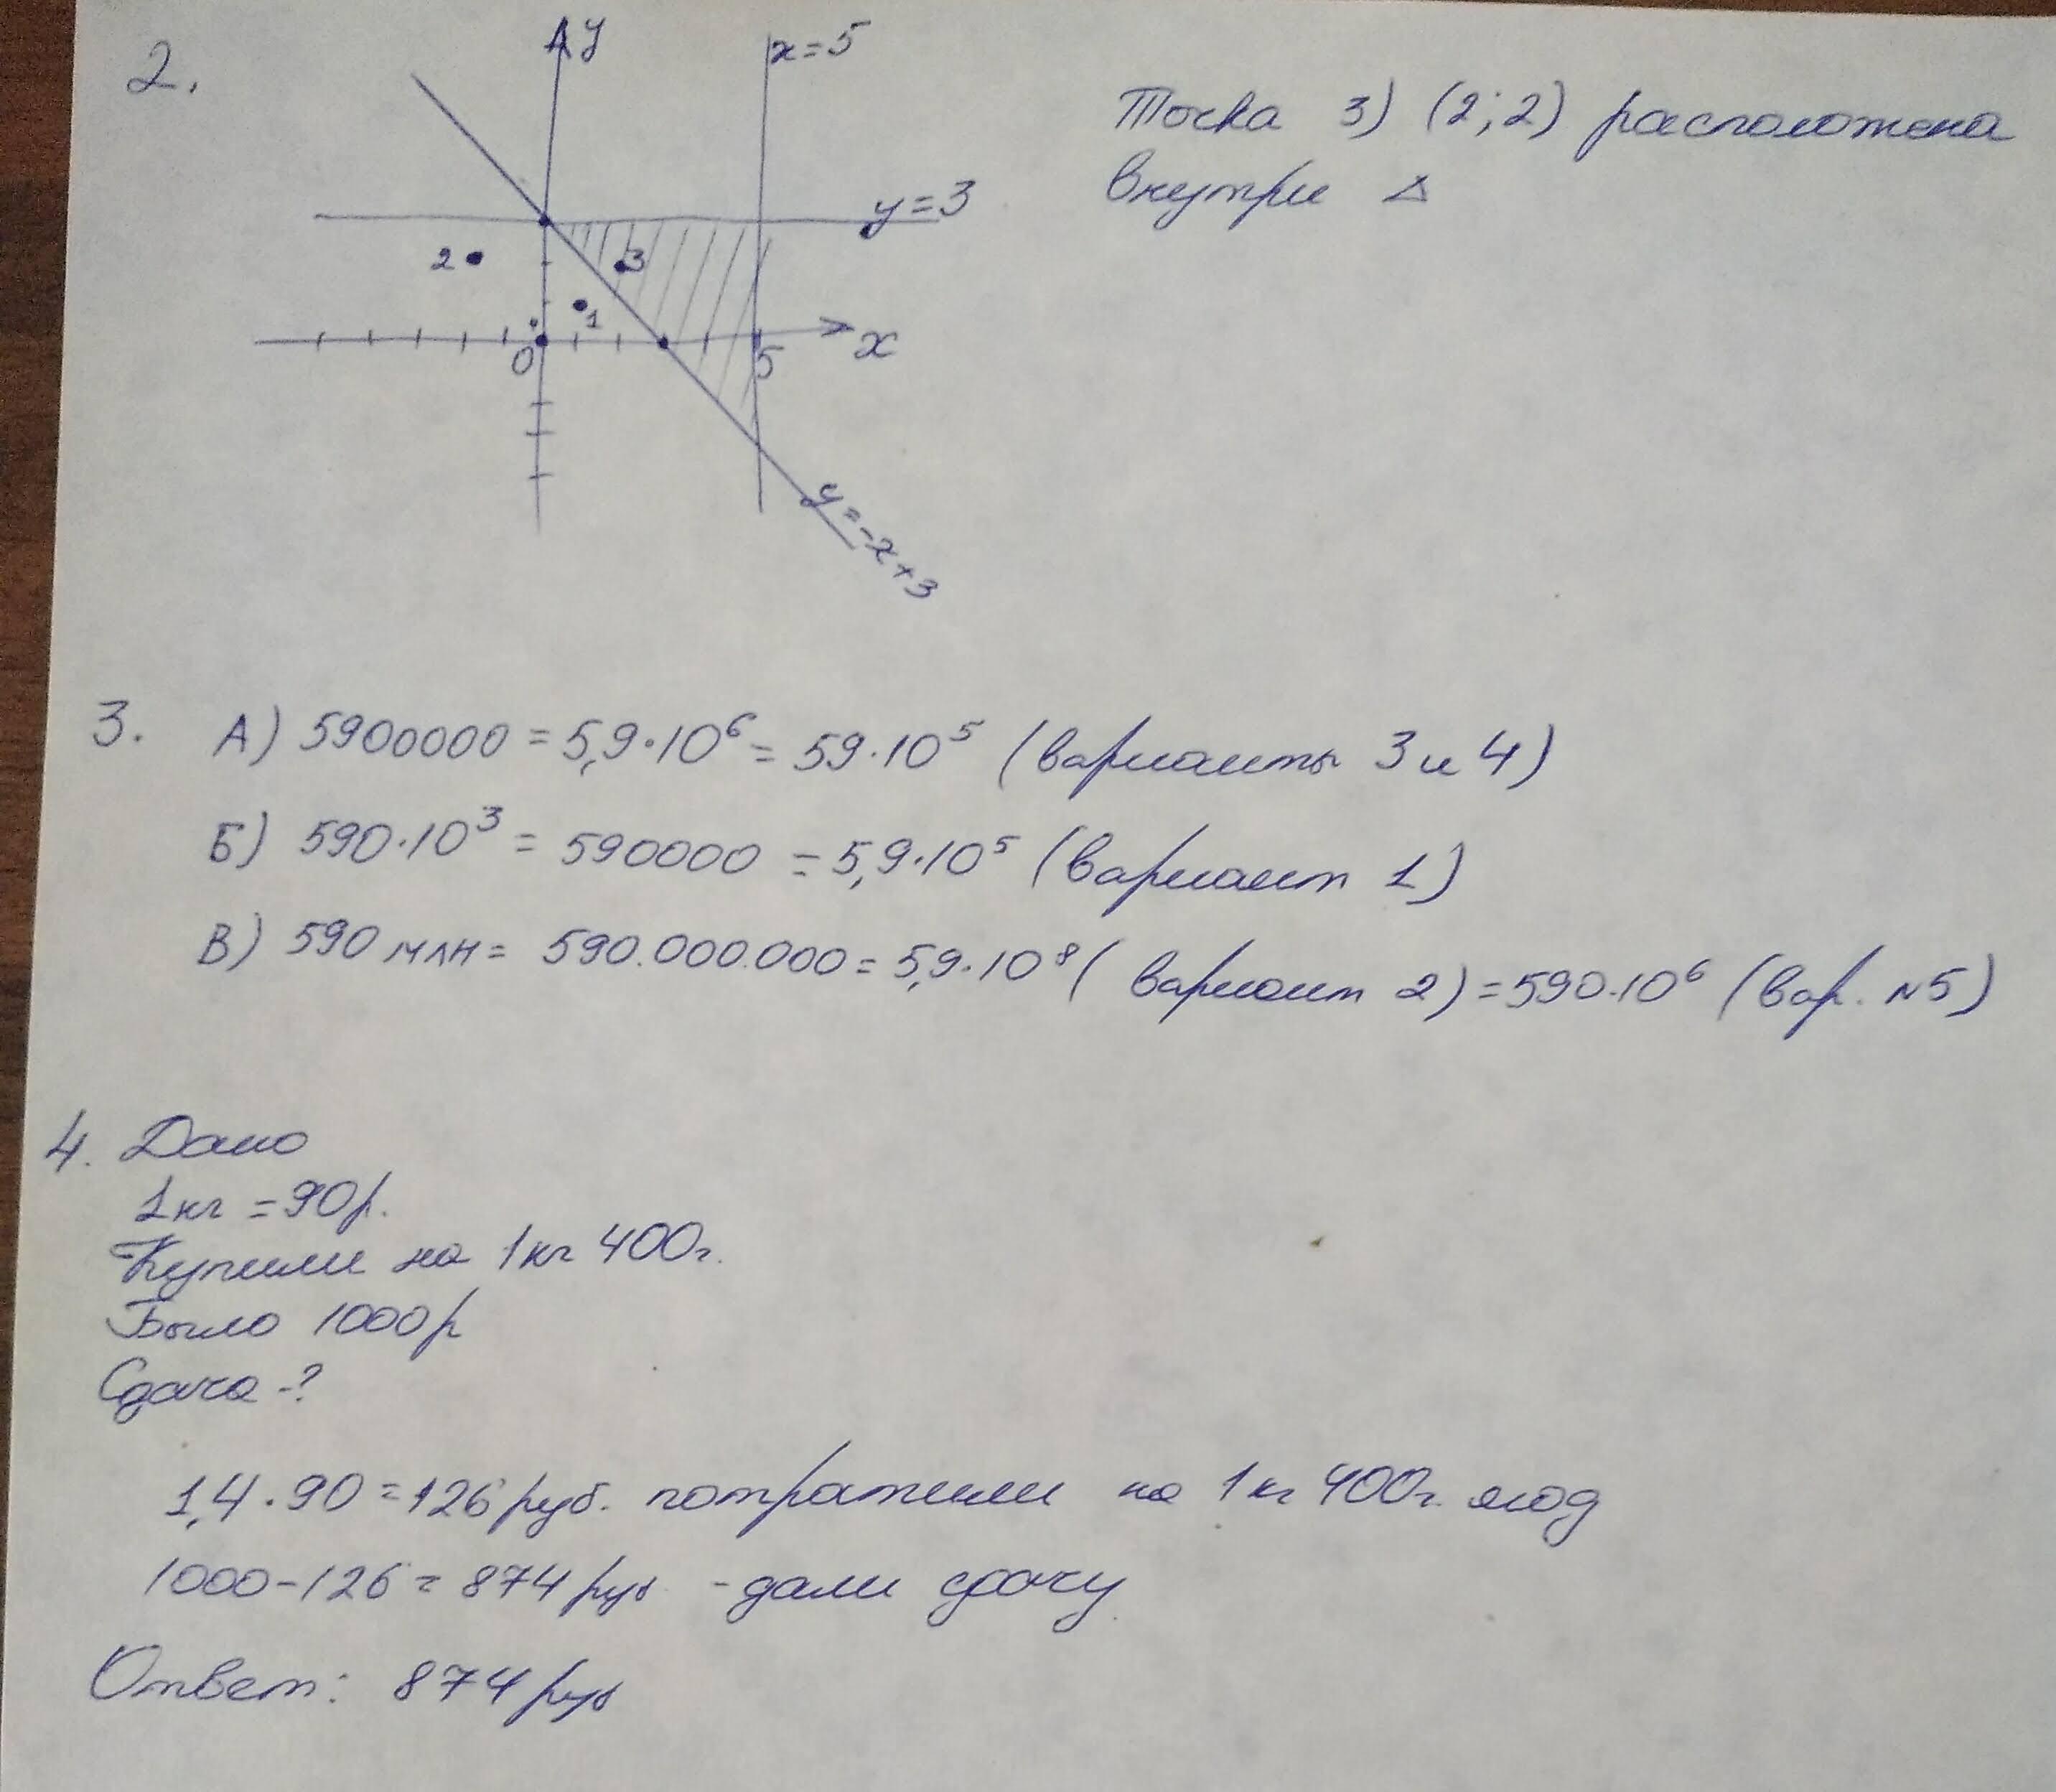 2.
y
x=5
Точка 3) (2;2) расположена
внутри Δ
y=3
2
3
1
0
5
x
y=-x+3
3. А) 5900000 = 5,9·10⁶ = 59·10⁵ (варианты 3 и 4)
Б) 590·10³ = 590000 = 5,9·10⁵ (вариант 1)
В) 590 млн = 590.000.000 = 5,9·10⁸ (вариант 2) = 590·10⁶ (вар. №5)
4. Дано
1кг = 90р.
Купили на 1кг 400г.
Было 1000р
Сдача -?
1,4·90 = 126 руб. потратили на 1кг 400г. ягод
1000-126 = 874 руб - дали сдачу
Ответ: 874 руб